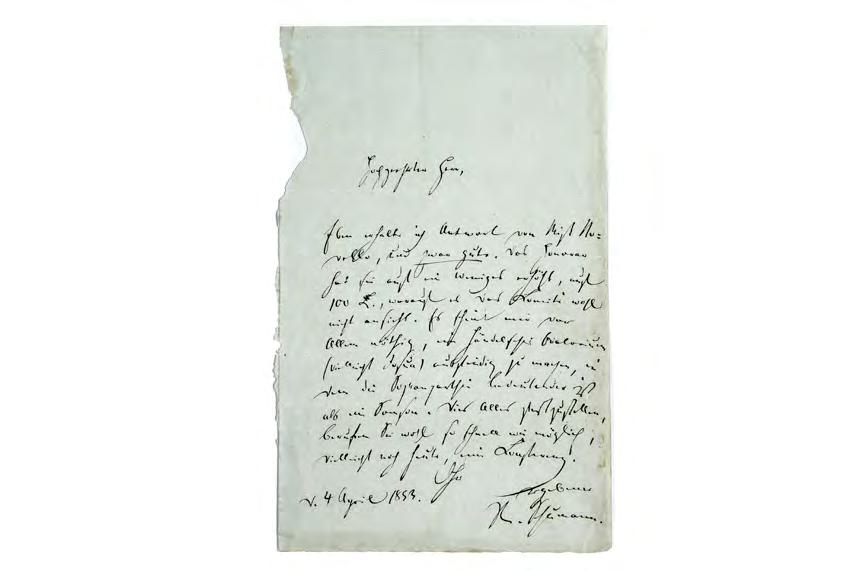 Hochgeehrter Herr,
Eben erhalte ich Antwort von Miß No=
vello, und zwar gute. Das Honorar
hat sie auch um weniges erhöht, auf
100 L., worauf es das Komité wohl
nicht ansieht. Es scheint mir vor
Allem nöthig, ein Händel'sches Oratorium
(vielleicht Josua) ausfindig zu machen, in
dem die Sopranparthie bedeutender ist
als im Samson. Dies Alles festzustellen,
berufen Sie wohl so schnell wie möglich,
vielleicht noch heute, eine Conferenz.
Ihr
ergebener
d. 4 April 1853.
R. Schumann.